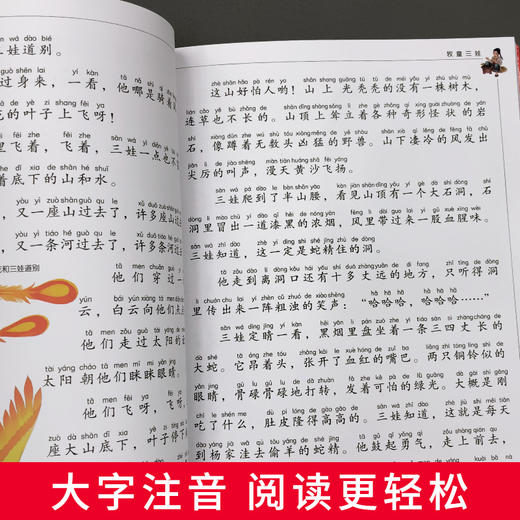 wá dào bié
三娃道别。
guò shēn lái yí kàn
过身来，一看，他哪是骑着
de yè zi shang fēi ya
花的叶子上飞呀！
里飞着，飞着，三娃一点也不
dǐ xia de shān hé shuǐ
着底下的山和水。
yòu yí zuò shān guò qù le
，又一座山过去了，许多座山
yòu yì tiáo hé guò qù le
，又一条河过去了，许多条河
花和三娃道别
tā men chuān guò yí
他们穿过一
yún bái yún xiàng tā men diǎn
云，白云向他们点
tā men zǒu guò tài yáng de
他们走过太阳的
tài yáng cháo tā men mī mi yǎn jing
太阳朝他们眯眯眼睛。
tā men fēi ya fēi ya
他们飞呀，飞呀，
zuò dà shān dǐ xia yè zi tíng
座大山底下，叶子停下
牧童三娃
zhè shān hǎo pà rén yo shān shang guāng tū tū de méi yǒu yì zhū shù mù
这山好怕人哟！山上光秃秃的没有一株树木，
连草也不长的。山顶上耸立着各种奇形怪状的岩
石，像蹲着无数头凶猛的野兽。山下凄冷的风发出
jiān lì de jiào shēng màn tiān huáng shā fēi yáng
尖厉的叫声，漫天黄沙飞扬。
sān wá pá dào le bàn shān yāo kàn jiàn shān dǐng yǒu yí gè dà shí dòng shí
三娃爬到了半山腰，看见山顶有一个大石洞，石
dòng li mào chū yí dào qī hēi de nóng yān fēng li dài guo lai yì gǔ xuè xīng wèi
洞里冒出一道漆黑的浓烟，风里带过来一股血腥味。
sān wá zhī dào zhè yí dìng shì shé jīng zhù de dòng
三娃知道，这一定是蛇精住的洞。
tā zǒu dào lí dòng kǒu hái yǒu shí duō zhàng yuǎn de dì fang zhǐ tīng de dòng
他走到离洞口还有十多丈远的地方，只听得洞
lǐ chuán chu lai yí zhèn cū zhuó de xiào shēng hā hā hā hā hā hā
里传出来一阵粗浊的笑声：“哈哈哈，哈哈哈……”
sān wá dìng jīng yí kàn hēi yān li pán zuò zhe yì tiáo sān sì zhàng cháng de
三娃定睛一看，黑烟里盘坐着一条三四丈长的
dà shé tā áng zhe tóu zhāng kāi le xuè hóng de zuǐ ba liǎng zhī tóng líng sì de
大蛇。它昂着头，张开了血红的嘴巴。两只铜铃似的
yǎn jing gū lù gū lù de zhuàn fā zhe kě pà de lǜ guāng dà gài shì gāng
眼睛，骨碌骨碌地打转，发着可怕的绿光。大概是刚
chī le shén me dù pí lóng de gāo gāo de sān wá zhī dào zhè jiù shì měi tiān
吃了什么，肚皮隆得高高的。三娃知道，这就是每天
dào yáng jiā wā qù tōu yáng de shé jīng tā gǔ qǐ yǒng qì zǒu shàng qián qù
到杨家洼去偷羊的蛇精。他鼓起勇气，走上前去，
大字注音 阅读更轻松